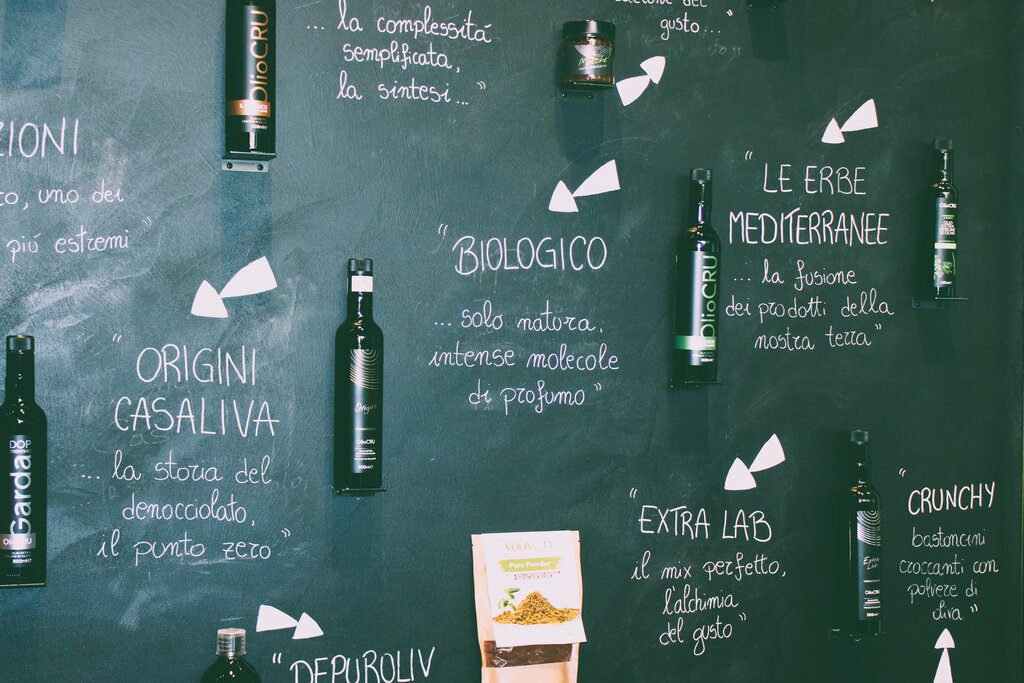 ... la complessitá
semplificata,
la sintesi..."
gusto..."
OlioCRU
ZIONI
co, uno dei
piú estremi"
"ORIGINI
CASALIVA
...la storia del
denocciolato,
il punto zero"
DOP
Garda
OlioCRU
500ml e
Origini
OlioCRU
500ml e
"BIOLOGICO
...solo natura,
intense molecole
di profumo"
OlioCRU
500ml e
"LE ERBE
MEDITERRANEE
...la fusione
dei prodotti della
nostra terra"
OlioCRU
"EXTRA LAB
il mix perfetto,
l'alchimia
del gusto"
OlioCRU
"CRUNCHY
bastoncini
croccanti con
polvere di
oliva"
Pure Powder
"DEPUROLIV